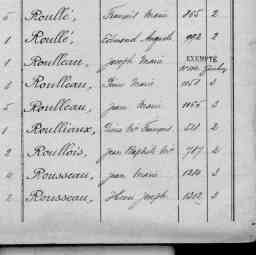 5 Roullé, François Marie 865 2
1 Roullé, Edmond Auguste 992 2
1 Roulleau, Joseph Marie EXEMPTÉ
1 Roulleau, Pierre Marie 1158 3
5 Roulleau, Jean Marie 1156 3
1 Roulliaux, Pierre Mie François 521 2
2 Roullois, Jean Baptiste Mie 787 2
4 Rousseau, Jean Marie 1284 3
2 Rousseau, Henri Joseph 1302 3